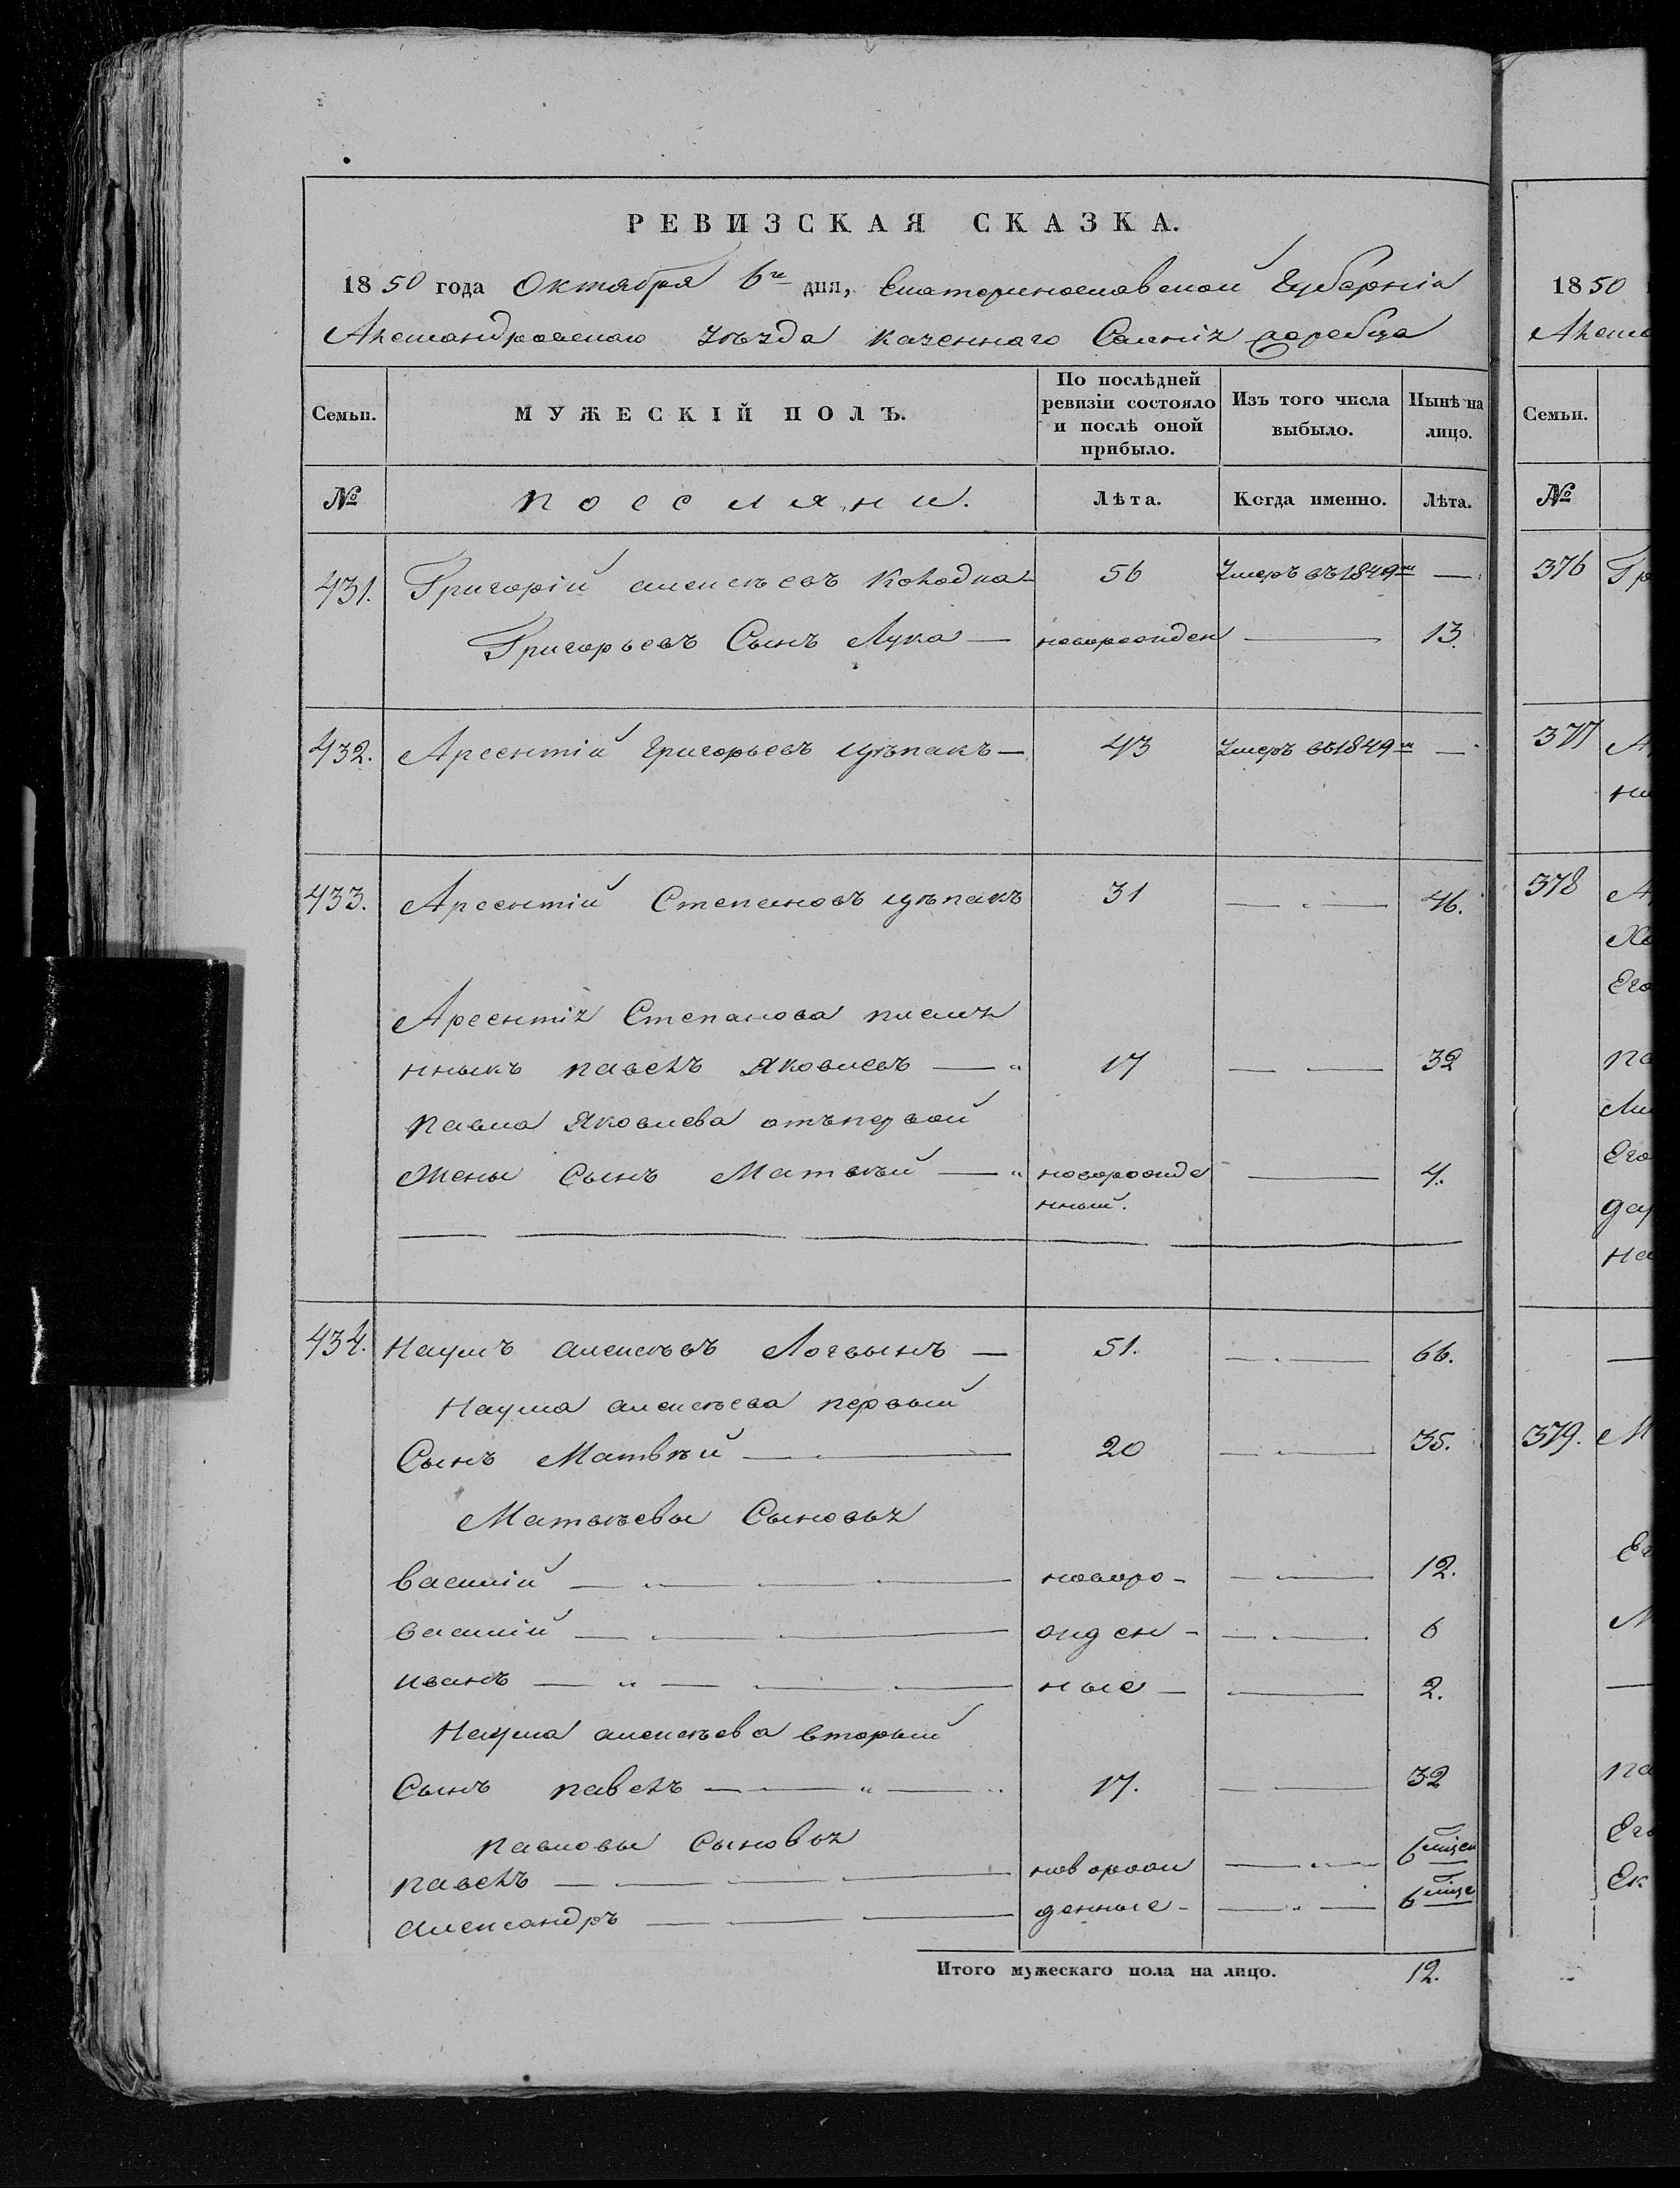 РЕВИЗСКАЯ СКАЗКА.
1850 года Октября 6го дня, Екатеринославской Губерніи
Александровскаго уѣзда казеннаго Селенія
Семьи. МУЖЕСКІЙ ПОЛЪ. По послѣдней ревизіи состояло и послѣ оной прибыло. Изъ того числа выбыло. Нынѣ на лицо.
№ поселяни. Лѣта. Когда именно. Лѣта.
431. Григорій алексѣевъ Колодка — 56 Умеръ въ 1849м —
Григорьевъ Сынъ Лука — новорожден — 13.
432. Арсентій Григорьевъ цѣпакъ — 43 Умеръ въ 1849м —
433. Арсентій Степановъ цѣпакъ 31 — 46.
Арсентія Степанова племя
нныкъ павелъ Яковлевъ — 17 — 32
павла Яковлева отъ первой
Жены Сынъ Матвѣй — новорожде — 4.
нный.
434. Наумъ алексѣевъ Логвынъ — 51. — 66.
Наума алексѣева первый
Сынъ Матвѣй — 20 — 35.
Матвѣевы Сыновья
василій — новоро- — 12.
василій — жден- — 6
иванъ — ные — 2.
Наума алексѣева вторый
Сынъ павелъ — 17. — 32
павловы Сыновья
павелъ — новорож — 6 мцсе
александръ — денные — 6 мцсе
Итого мужескаго пола на лицо. 12.
1850
Алекса
Семьи.
№
376 Гр
377 А
ни
378 А
Хо
Его
па
Ег
дар
на
379. М
Ег
М
па
Его
Ек